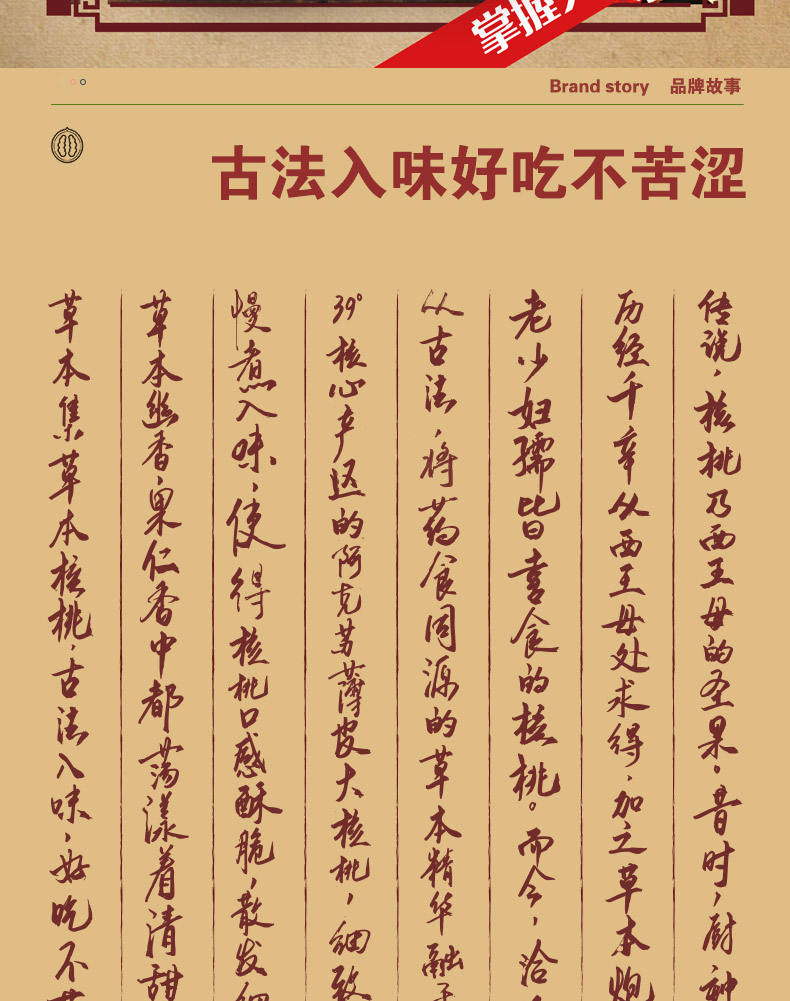 掌握
Brand story 品牌故事
古法入味好吃不苦涩
传说，核桃乃西王母的圣果，昔时，厨神
历经千辛从西王母处求得，加之草本炮
老少妇孺皆喜食的核桃。而今，洽
从古法，将药食同源的草本精华融于
39°核心产区的阿克苏薄皮大核桃，细致
慢煮入味，使得核桃口感酥脆，散发细
草本幽香，果仁香中都荡漾着清甜
草本集草本核桃，古法入味，好吃不苦